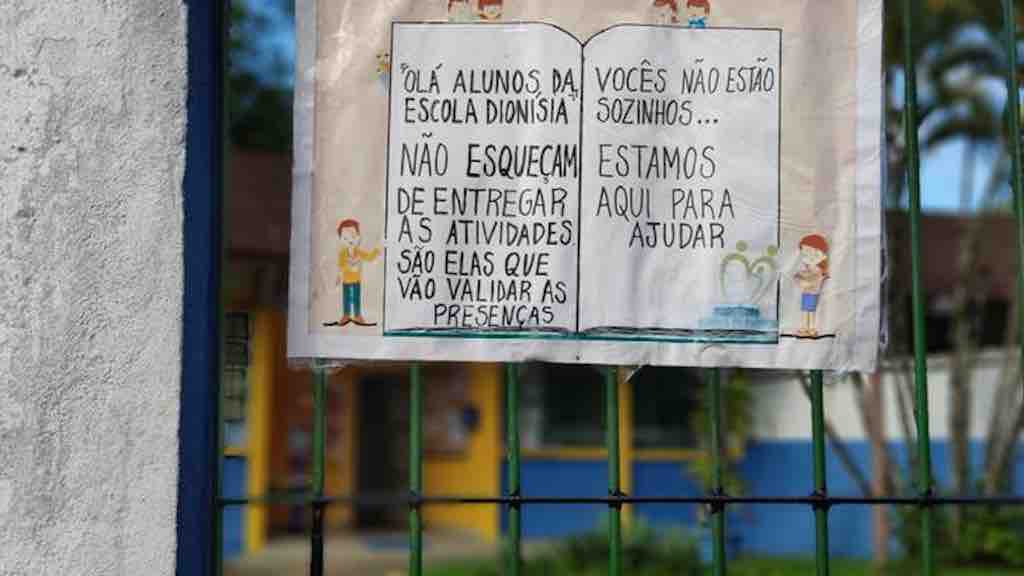 "OLÁ ALUNOS DA
ESCOLA DIONÍSIA"
NÃO ESQUEÇAM
DE ENTREGAR
AS ATIVIDADES.
SÃO ELAS QUE
VÃO VALIDAR AS
PRESENÇAS
VOCÊS NÃO ESTÃO
SOZINHOS...
ESTAMOS
AQUI PARA
AJUDAR